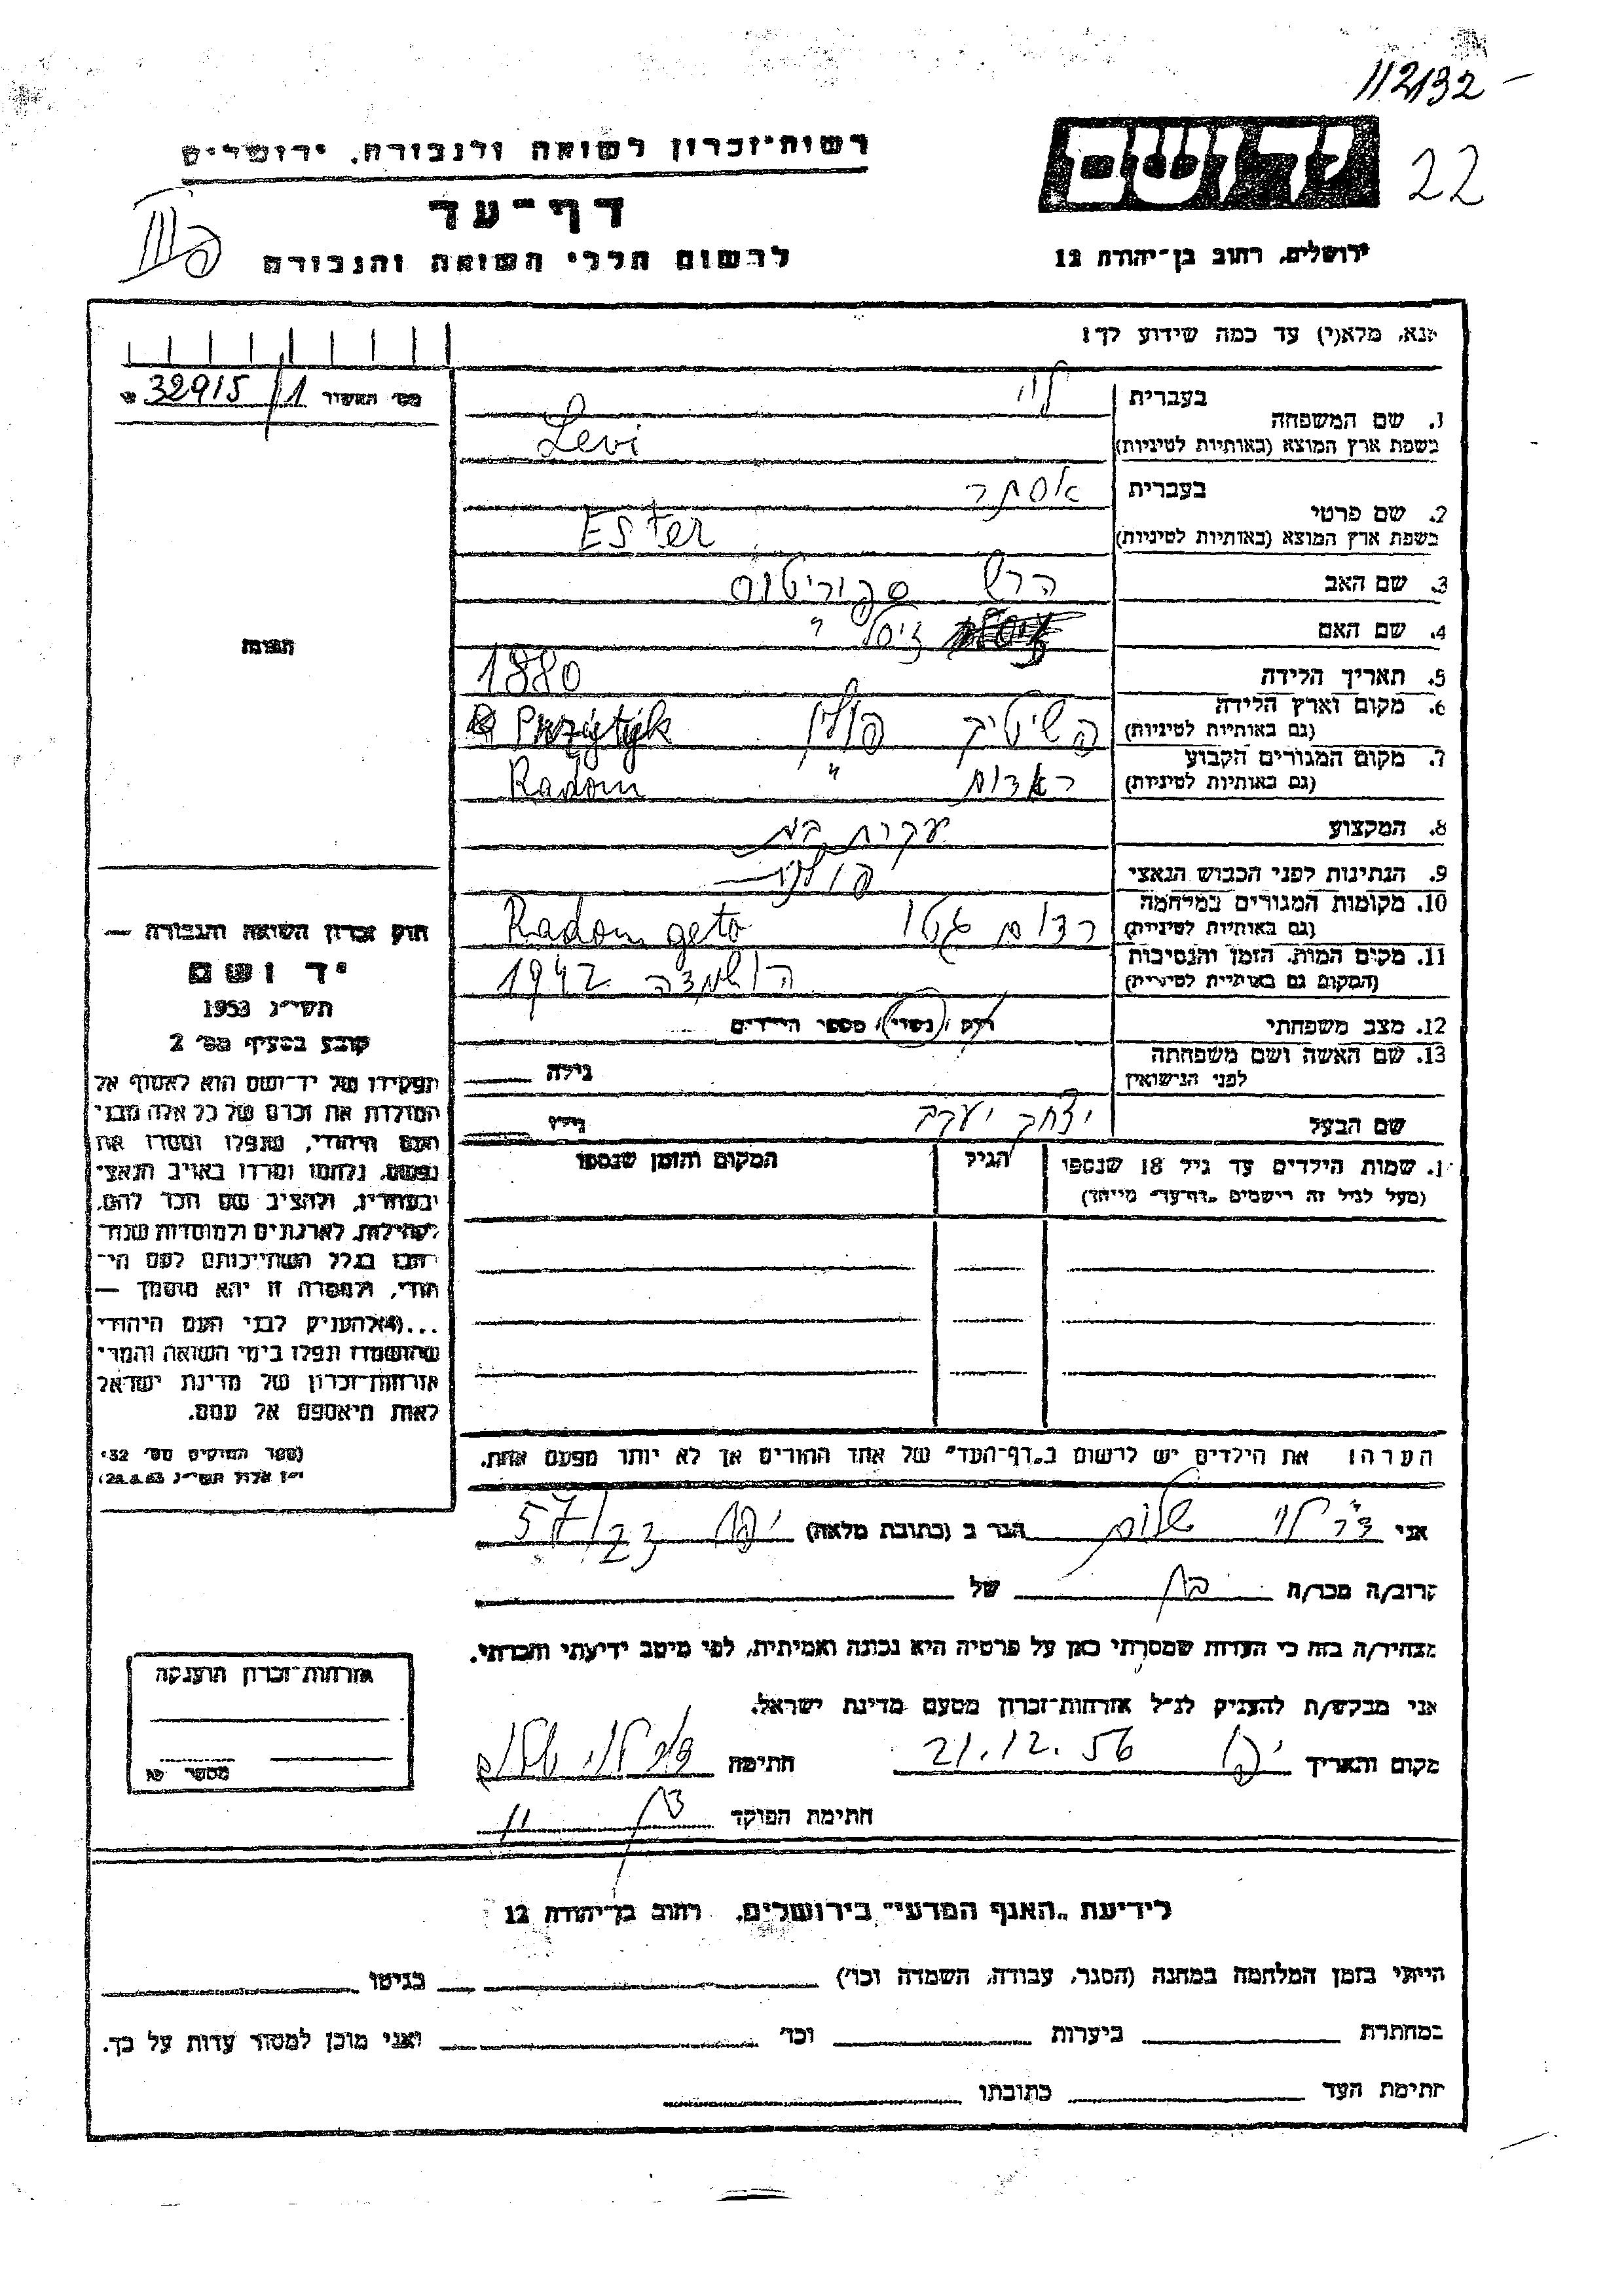 112132 -
22
רשות־זכרון לשואה ולגבורה, ירושלים
יד ושם
דף־עד
לרשום חללי השואה והגבורה
ירושלים, רחוב בן־יהודה 12
אנא, מלא(י) עד כמה שידוע לך!
מס' האשור 32915/1
בעברית לוי
1. שם המשפחה
בשפת ארץ המוצא (באותיות לטיניות) Levi
בעברית אסתר
2. שם פרטי
בשפת ארץ המוצא (באותיות לטיניות) Ester
3. שם האב הרש
4. שם האם "
5. תאריך הלידה 1880
6. מקום וארץ הלידה
(גם באותיות לטיניות) פשיטיק פולין Przytyk
7. מקום המגורים הקבוע
(גם באותיות לטיניות) ראדום " Radom
8. המקצוע עקרת בית
9. הנתינות לפני הכבוש הנאצי פולנית
10. מקומות המגורים במלחמה
(גם באותיות לטיניות) רדום גטו Radom geto
11. מקום המות, הזמן והנסיבות
(המקום גם באותיות לטיניות) הושמדה 1942
12. מצב משפחתי רוק, נשוי, מספר הילדים
13. שם האשה ושם משפחתה
לפני הנישואין גילה
שם הבעל יצחק יעקב גילו
ו. שמות הילדים עד גיל 18 שנספו הגיל המקום והזמן שנספו
(מעל לגיל זה רישמים „דף־עד" מייחד)
הערה: את הילדים יש לרשום ב„דף־העד" של אחד ההורים אך לא יותר מפעם אחת.
חוק זכרון השואה והגבורה —
יד ושם
תשי"ג 1953
קובע בסעיף מס' 2
תפקידו של יד־ושם הוא לאסוף אל
המולדת את זכרם של כל אלה מבני
העם היהודי, שנפלו ומסרו את
נפשם, נלחמו ומרדו באויב הנאצי
ובעוזריו, ולהציב שם וזכר להם,
לקהילות, לארגונים ולמוסדות שנחר
רבו בגלל השתייכותם לעם הי־
הודי, ולמטרה זו יהא מוסמך —
...(4) להעניק לבני העם היהודי
שהושמדו ונפלו בימי השואה והמרי
אזרחות־זכרון של מדינת ישראל
לאות היאספם אל עמם.
(ספר החוקים מס' 132
י"ז אלול תשי"ג 28.8.53)
אני לוי שלום הגר ב (כתובת מלאה) יפו 57/23
קרוב/ה מכר/ה בן של
מצהיר/ה בזה כי העדות שמסרתי כאן על פרטיה היא נכונה ואמיתית, לפי מיטב ידיעתי והכרתי.
אני מבקש/ת להעניק לנ"ל אזרחות־זכרון מטעם מדינת ישראל.
מקום ותאריך יפו 21.12.56 חתימה
חתימת הפוקד
אזרחות־זכרון הוענקה
מספר
לידיעת „האגף המדעי" בירושלים, רחוב בן־יהודה 12
הייתי בזמן המלחמה במחנה (הסגר, עבודה, השמדה וכו') בגיטו
במחתרת ביערות וכו' ואני מוכן למסור עדות על כך.
חתימת העד כתובתו